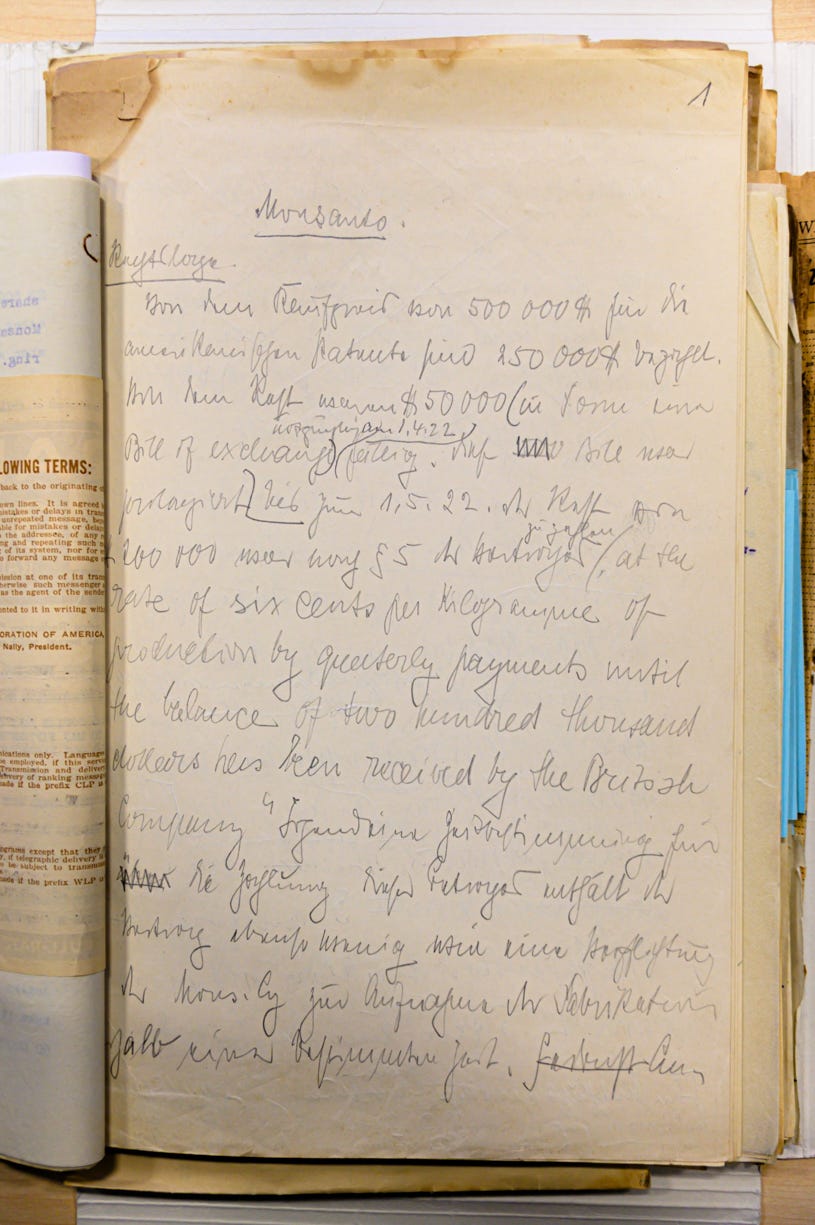 1
Monsanto.
Rechtslage.
Von dem Kaufpreis von 500 000 $ für die
amerikanischen Patente sind 250 000 $ bezahlt.
Von dem Rest waren $ 50 000 (in Form einer
ursprünglich am 1.4.22
Bill of exchange) fällig. Diese Bill war
prolongiert bis zum 1.5.22. Der Rest von
zu zahlen
$ 200 000 war nach § 5 des Vertrages "at the
rate of six cents per Kilogramme of
production by quaterly payments until
the balance of two hundred thousand
dollars has been received by the British
Company" Irgendeine Zeitbestimmung für
die Zahlung dieses Betrages enthält der
Vertrag ebenso wenig wie eine Verpflichtung
der Mons. Cy zur Aufnahme der Fabrikation
halb einer bestimmten Zeit.
share
Monsa
ring.
LOWING TERMS:
back to the originating
own lines. It is agreed
mistakes or delays in
unrepeated message,
ble for mistakes or
the addressee, of any
ng and repeating such
of its system, nor for
o forward any message
mission at one of its
herwise such messenger
as the agent of the sende
ented to it in writing
ORATION OF AMERICA
Nally, President.
ications only. Language
be employed, if this
Transmission and
delivery of ranking message
made if the prefix CLP is
ograms except that they
y, if telegraphic delivery is
be subject to
made if the prefix WLP is